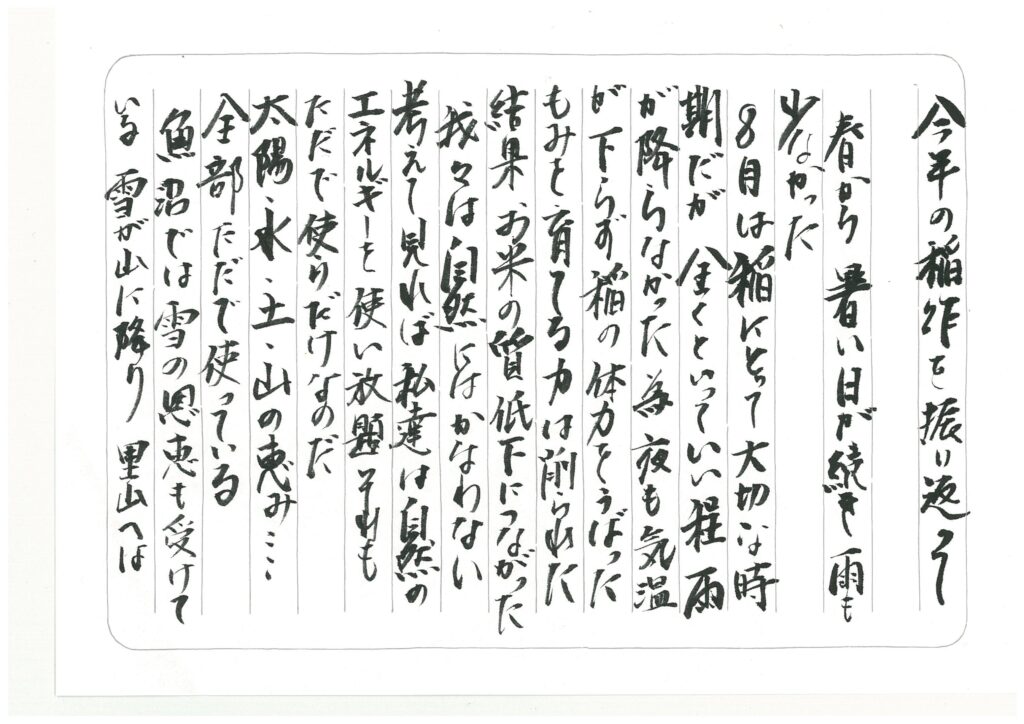 今年の稲作を振り返って
春から 暑い日が続き 雨も
少なかった
8月は稲にとって大切な時
期だが 全くといっていい程 雨
が降らなかった為 夜も気温
が下らず 稲の体力をうばった
もみを育てる力は削られた
結果 お米の質低下につながった
我々は自然にはかなわない
考えて見れば 私達は自然の
エネルギーを使い放題 それも
ただで使りだけなのだ
太陽・水・土・山の恵み・・・
全部ただで使っている
魚沼では雪の恩恵も受けて
いる 雪が山に降り 里山へは